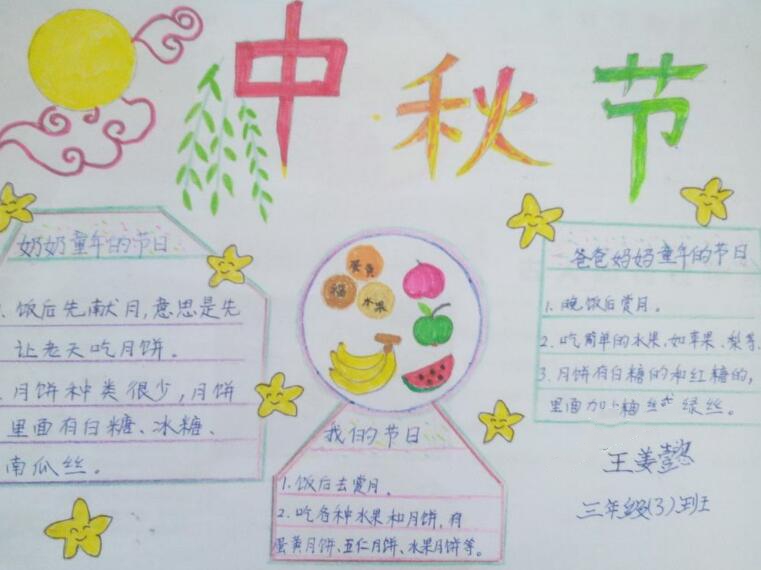 中秋节
奶奶童年的节日
1. 饭后先献月,意思是先
让老天吃月饼。
2. 月饼种类很少,月饼
里面有白糖、冰糖、
南瓜丝。
蛋黄
福
水果
我们的节日
1. 饭后去赏月。
2. 吃各种水果和月饼,有
蛋黄月饼、五仁月饼、水果月饼等。
爸爸妈妈童年的节日
1. 晚饭后赏月。
2. 吃简单的水果,如苹果、梨等
3. 月饼有白糖的和红糖的,
里面加上梅丝或绿丝。
王姜懿
三年级(3)班